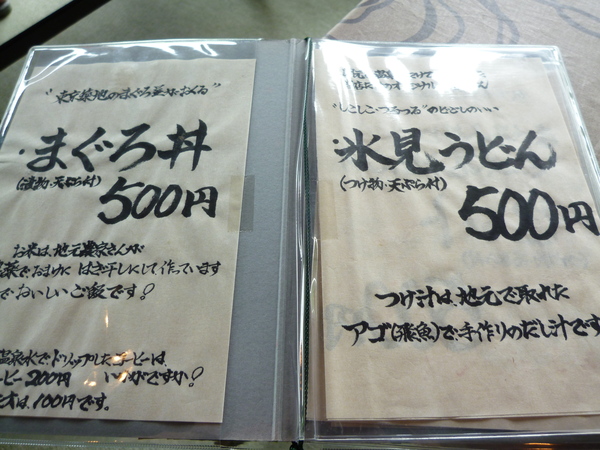 "東京築地のまぐろ
・まぐろ丼
(漬物・天ぷら付)
500円
お米は、地元農家さんが
でおまけに はさ干しにして作っています
でおいしいご飯です!
水で、ドリップしたコーヒーは、
ーヒー 200円 いかがですか?
は、100円です。
"しこしこ・つるつる"のどごしのいい
・氷見うどん
(つけ物・天ぷら付)
500円
つけ汁は、地元で取れた
アゴ(飛魚)で、手作りのだし汁です